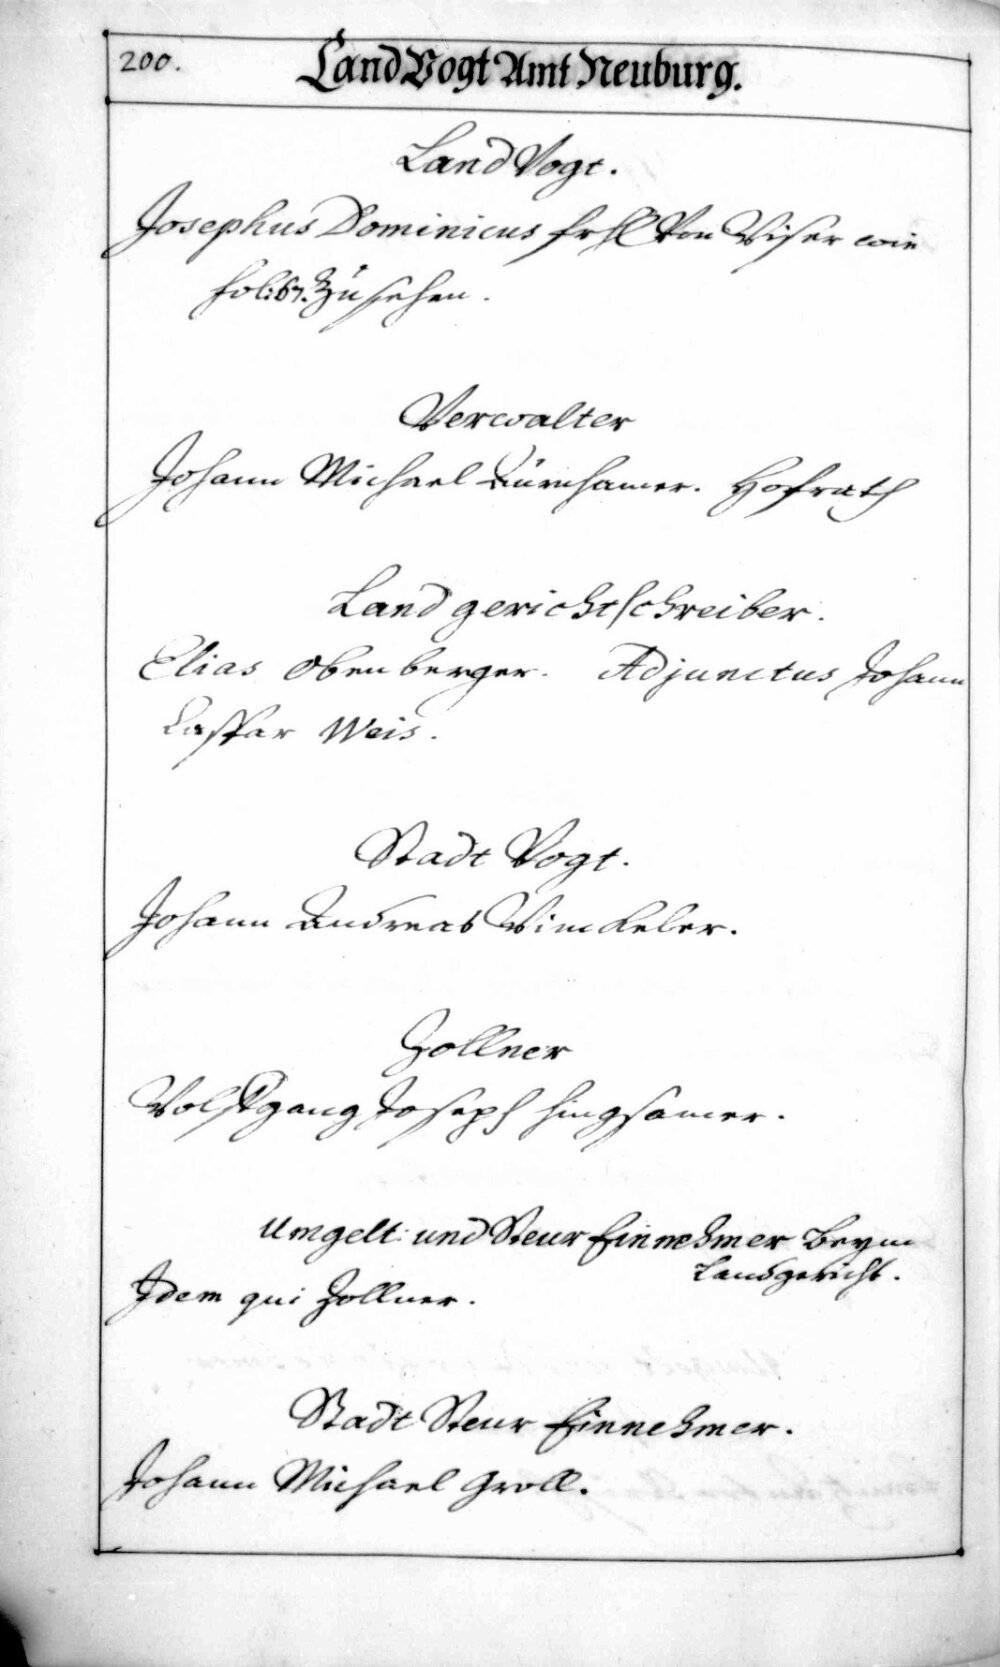 200.
LandVogt Amt Neuburg.
Land Vogt.
Josephus Dominicus frhl Von Viser wie
fol: 67. Zu sehen.
Verwalter
Johann Michael Hofrath
Landgerichtschreiber.
Elias Obenberger. Adjunctus Johann
Caspar Weis.
Stadt Vogt.
Johann Andreas Vinckeler.
Zollner
Wolfgang Joseph Hingsamer.
Umgelt: und Steur Einnehmer beym
Landgericht.
Idem qui Zollner.
Stadt Steur Einnehmer.
Johann Michael Groll.